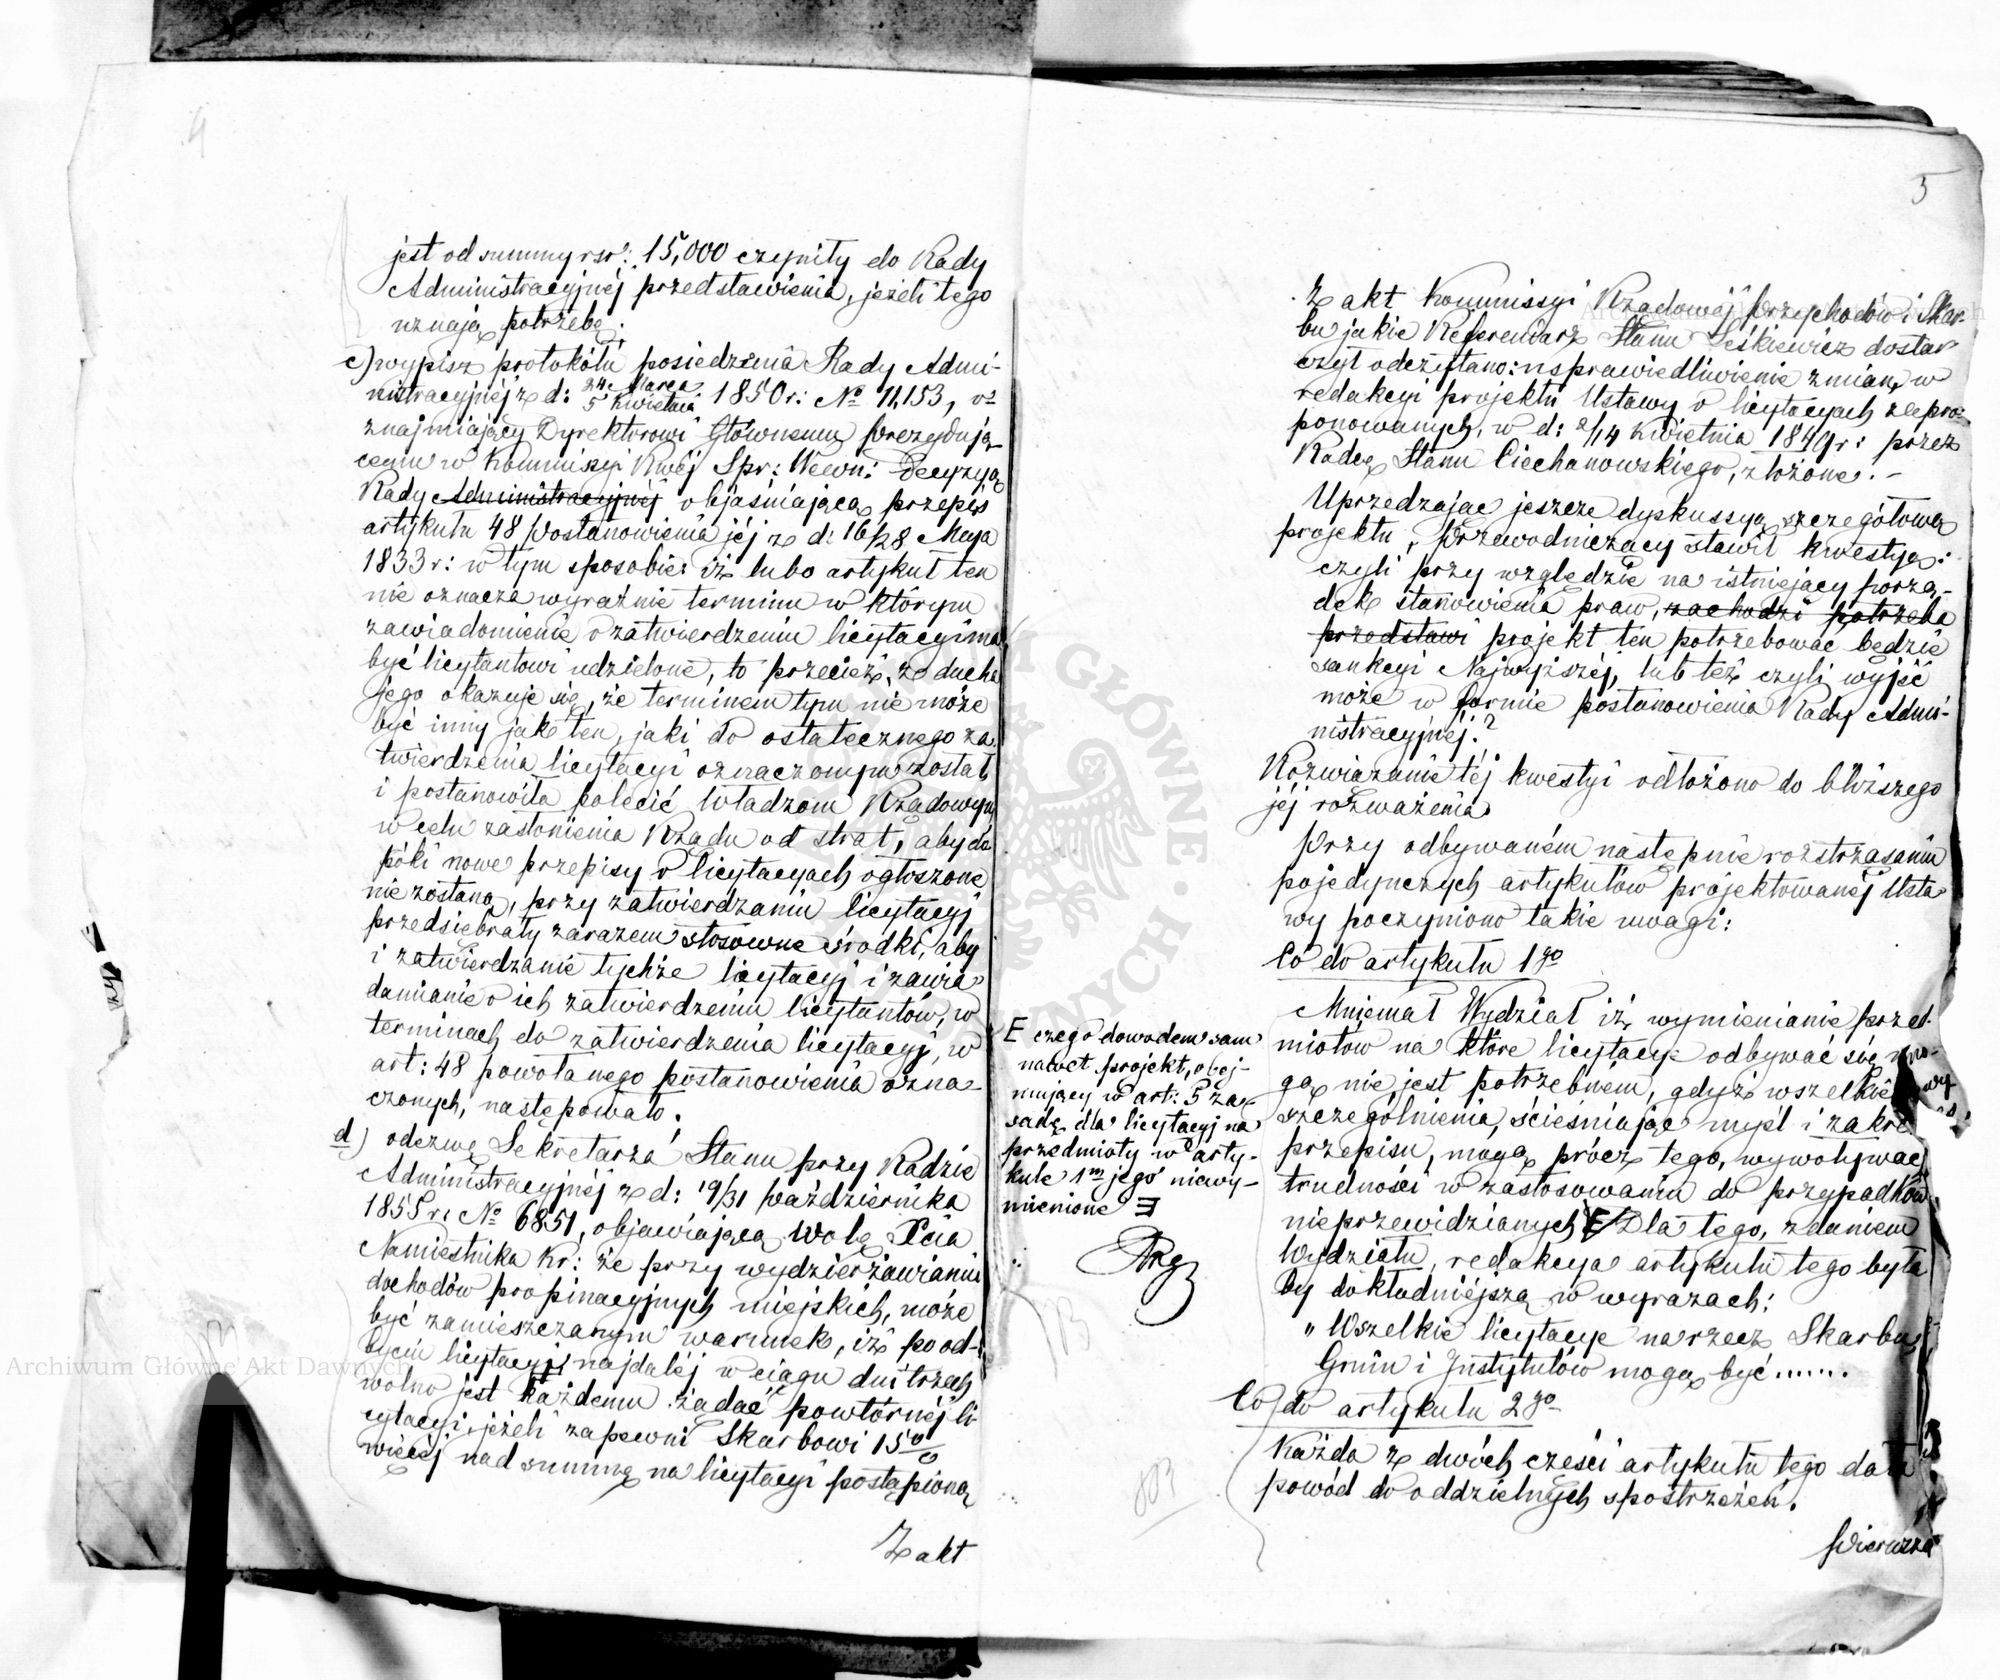 4
jest od summy rsr: 15,000 czyniły do Rady
Administracyjnéj przedstawienia, jeżeli tego
uznają potrzebę.
c) wypis z protokółu posiedzenia Rady Admi-
nistracyjnéj z d: 24 Marca / 5 Kwietnia 1850 r: No 11,153, o
znajmiający Dyrektorowi Głównemu Prezydują-
cemu w Kommissyi Rwéj Spr: Wewn: Decyzyą
Rady Administracyjnéj objaśniającą przepis
artykułu 48 Postanowienia jéj z d: 16/28 Maja
1833 r: w tym sposobie: iż lubo artykuł ten
nie oznacza wyraźnie terminu w którym
zawiadomienie o zatwierdzeniu licytacyi ma
być licytantowi udzielone, to przecież, z ducha
jego okazuje się, że terminem tym nie może
być inny jak ten, jaki do ostatecznego za
twierdzenia licytacyi oznaczonym został,
i postanowiła polecić Władzom Rządowym
w celu zasłonienia Rządu od strat, aby do
póki nowe przepisy o licytacyach ogłoszone
nie zostaną, przy zatwierdzaniu licytacyj
przedsiębrały zarazem stosowne środki, aby
i zatwierdzanie tychże licytacyj i zawia
damianie o ich zatwierdzeniu licytantów, w
terminach do zatwierdzenia licytacyj, w
art: 48 powołanego postanowienia ozna-
czonych, następowało.
d) odezwę Sekretarza Stanu przy Radzie
Administracyjnéj z d: 19/31 Października
1855 r: No 6851, objawiającą wolę Xcia
Namiestnika Kr: że przy wydzierżawianiu
dochodów propinacyjnych miejskich, może
być zamieszczanym warunek, iż po od-
byciu licytacyi najdaléj w ciągu dni trzech
wolno jest każdemu żądać powtórnéj li
cytacyi, jeżeli zapewni Skarbowi 15%
więcéj nad summę na licytacyi postąpioną
Z akt
5
Z akt Kommissyi Rządowéj Przychodów i Skar-
bu jakie Referendarz Stanu Leśkiewicz dostar
czył odczytano: usprawiedliwienie zmian, w
redakcyi projektu Ustawy o licytacyach zapro-
ponowanych, w d: 2/14 Kwietnia 1849 r: przez
Radcę Stanu Ciechanowskiego, złożone. –
Uprzedzając jeszcze dyskussyą szczegółową
projektu, Przewodniczący stawił kwestyą:
czyli przy względzie na istniejący porzą-
dek stanowienia praw, zachodzi potrzeba
przedstawi projekt ten potrzebować będzie
sankcyi Najwyższéj, lub też czyli wyjść
może w formie postanowienia Rady Admi-
nistracyjnéj?
Rozwiązanie téj kwestyi odłożono do bliższego
jéj rozważenia.
Przy odbywaném następnie roztrząsaniu
pojedynczych artykułów projektowanéj Usta
wy poczyniono takie uwagi:
Co do artykułu 1go
Mniemał Wydział iż wymienianie przed-
miotów na które licytacye odbywać się mo-
gą nie jest potrzebném, gdyż wszelkie wy
szczególnienia, ścieśniając myśl i zakres
przepisu, mogą prócz tego, wywoływać
trudności w zastosowaniu do przypadków
nieprzewidzianych E Dla tego, zdaniem
Wydziału, redakcya artykułu tego była
by dokładniejszą w wyrazach:
„Wszelkie licytacye na rzecz Skarbu,
Gmin i Instytutów mogą być.......
Co do artykułu 2go
Każda z dwóch części artykułu tego dała
powód do oddzielnych spostrzeżeń.
Pierwsza
E czego dowodem sam
nawet projekt, obej-
mujący w art: 5 za-
sadę dla licytacyj na
przedmioty w arty-
kule 1m jego niewy-
mienione E
803
Archiwum Główne Akt Dawnych